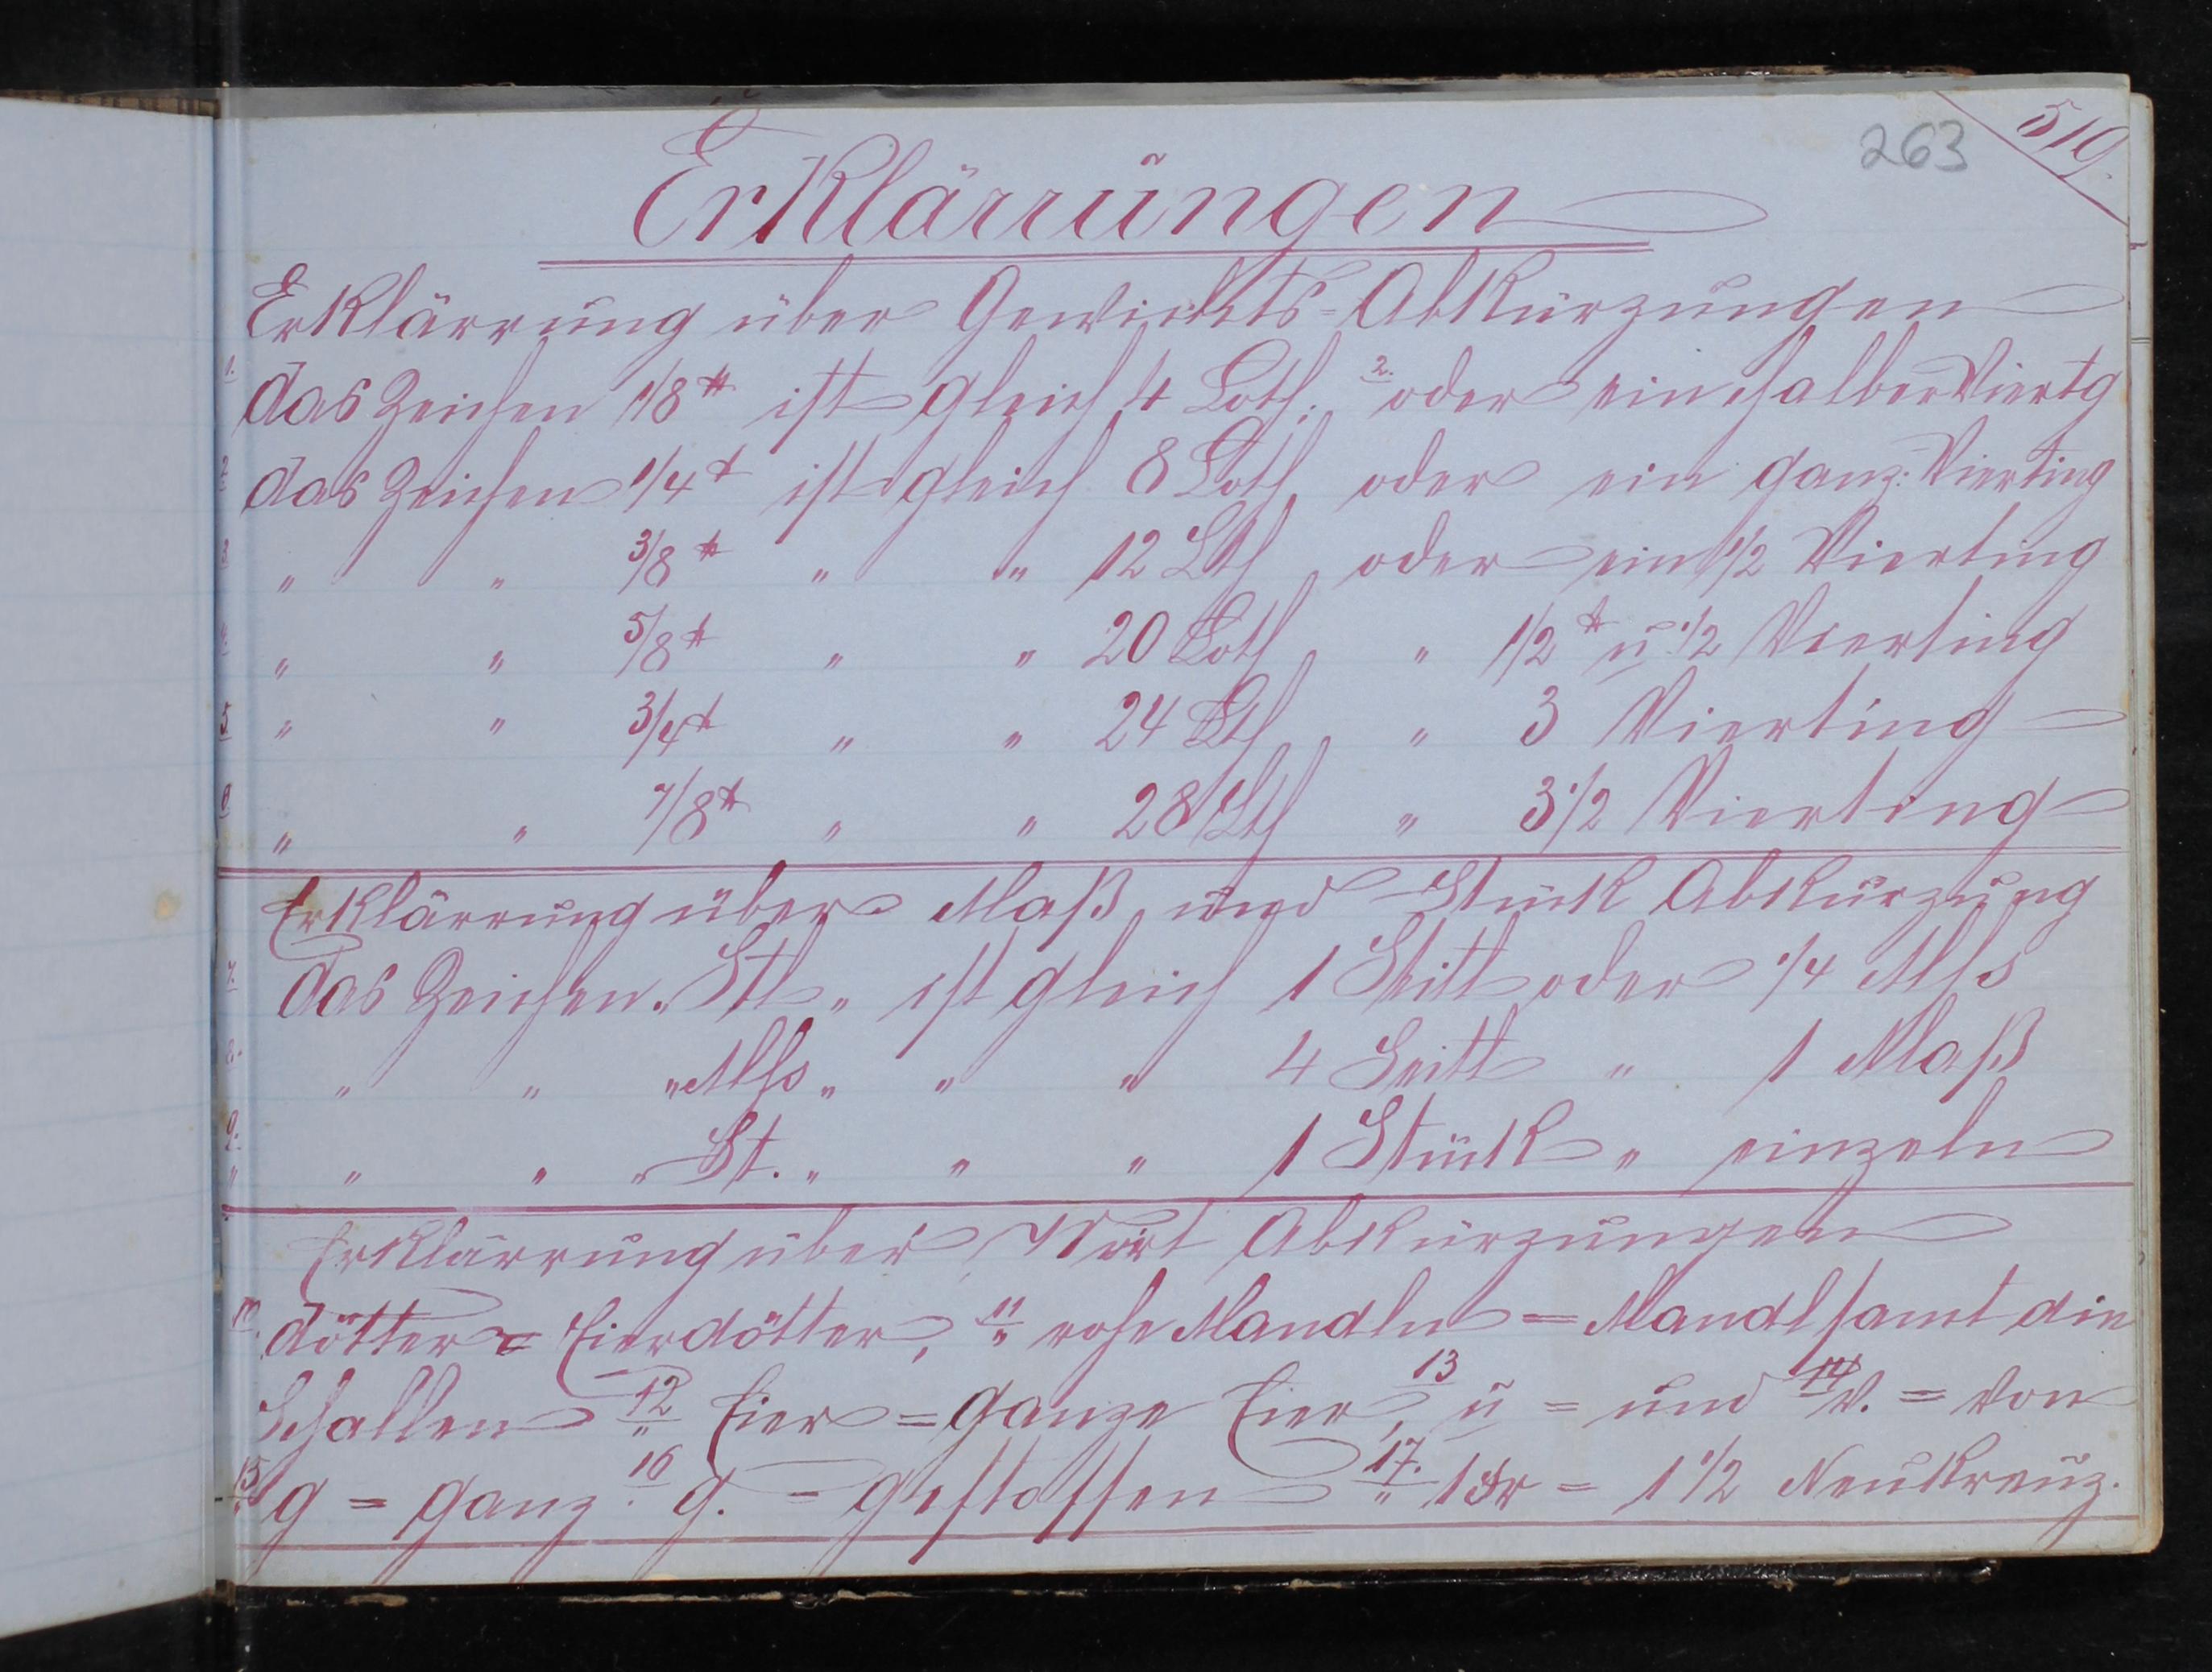 263
519.
Erklärrungen
Erklärrung über Gewichts=Abkürzungen
1. das Zeichen 1/8 ℔ ist gleich 4 Loth. 2. oder ein halber Viertg
2 das Zeichen 1/4 ℔ ist gleich 8 Loth oder ein ganz: Vierting
3 " " 3/8 ℔ " " 12 Lth oder ein 1/2 Vierting
4. " " 5/8 ℔ " " 20 Loth " 1/2 ℔ u 1/2 Vierting
5. " " 3/4 ℔ " " 24 Lth " 3 Vierting
6 " " 7/8 ℔ " " 28 Lth " 3 1/2 Vierting
Erklärrung über Maß und Stück Abkürzung
7. das Zeichen "Stl" ist gleich 1 Seitl oder 1/4 Mß
8. " " "Mß" " " 4 Seitl " 1 Maß
9. " " " "St." " " 1 Stück " einzeln
Erklärrung über Wort Abkürzungen
10. dötter = Eierdötter, 11 rohe Mandln = Mandl samt die
Schallen 12 Eier = ganze Eier, 13 u = und 14 v. = von
15 g = ganz. 16 g. = gestossen 17. 1 gr = 1 1/2 Neukreuz.